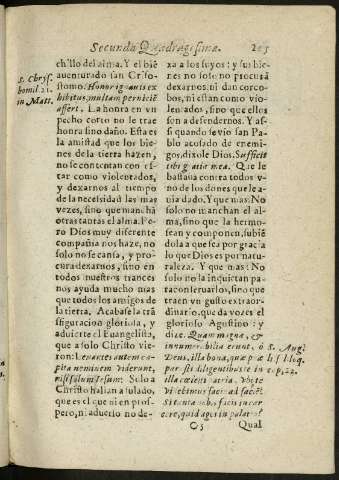 Secunda Quadragesimæ. 205
chillo del alma. Y el biē
auenturado san Criso-
stomo: Honor ignauis ex
hibitus, multam perniciē
affert. La honra en vn
pecho corto no le trae
honra sino daño. Esta es
la amistad que los bie-
nes de la tierra hazen,
no se contentan con es-
tar como violentados,
y dexarnos al tiempo
de la necesidad las mas
vezes, sino que manchā
otras tantas el alma. Pe-
ro Dios muy diferente
compañia nos haze, no
solo no se cansa, y pro-
cura dexarnos, sino en
todos nuestros trances
nos ayuda mucho mas
que todos los amigos de
la tierra. Acabase la trā
sfiguracion gloriosa, y
aduierte el Euangelista,
que a solo Christo vie-
ron: Leuantes autem
neminem viderunt,
nisi solum Iesum. Solo a
Christo hallan a su lado,
que es el que ni en pros-
pero, ni aduerso no de-
s. Chrys.
homil. 21.
in Matt.
xa a los suyos: y sus bie-
nes no solo no procurā
dexarnos, ni dan corco-
bos, ni estan como vio-
lentados, sino que ellos
son a defendernos. Y as-
si quando se vio san Pa-
blo acosado de enemi-
gos, dixole Dios. Sufficit
tibi gratia mea. Que le
bastaua contra todos v-
no de los dones que le a-
uia dado. Y que mas? No
solo no manchan el al-
ma, sino que la hermo-
sean y componen, subiē
dola a que sea por gracia
lo que Dios es por natu-
raleza. Y que mas? No
solo no la inquietan pa-
ra conseruarlos, sino que
traen vn gusto extraor-
dinario, que da vozes el
glorioso Agustino: y
dize. Quam magna, &
innumerabilia erunt, ô
Deus, illa bona, quæ
par sti diligentibus te in
illa cælesti patria.
S. Aug.
cap. 22.
O5 Qual